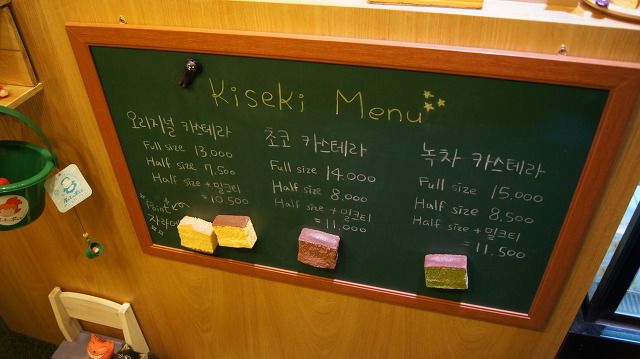 Kiseki Menu
오리지널 카스테라
Full size 13,000
Half size 7,500
Half size + 밀크티
= 10,500
Point
초코 카스테라
Full size 14,000
Half size 8,000
Half size + 밀크티
= 11,000
녹차 카스테라
Full size 15,000
Half size 8,500
Half size + 밀크티
= 11,500